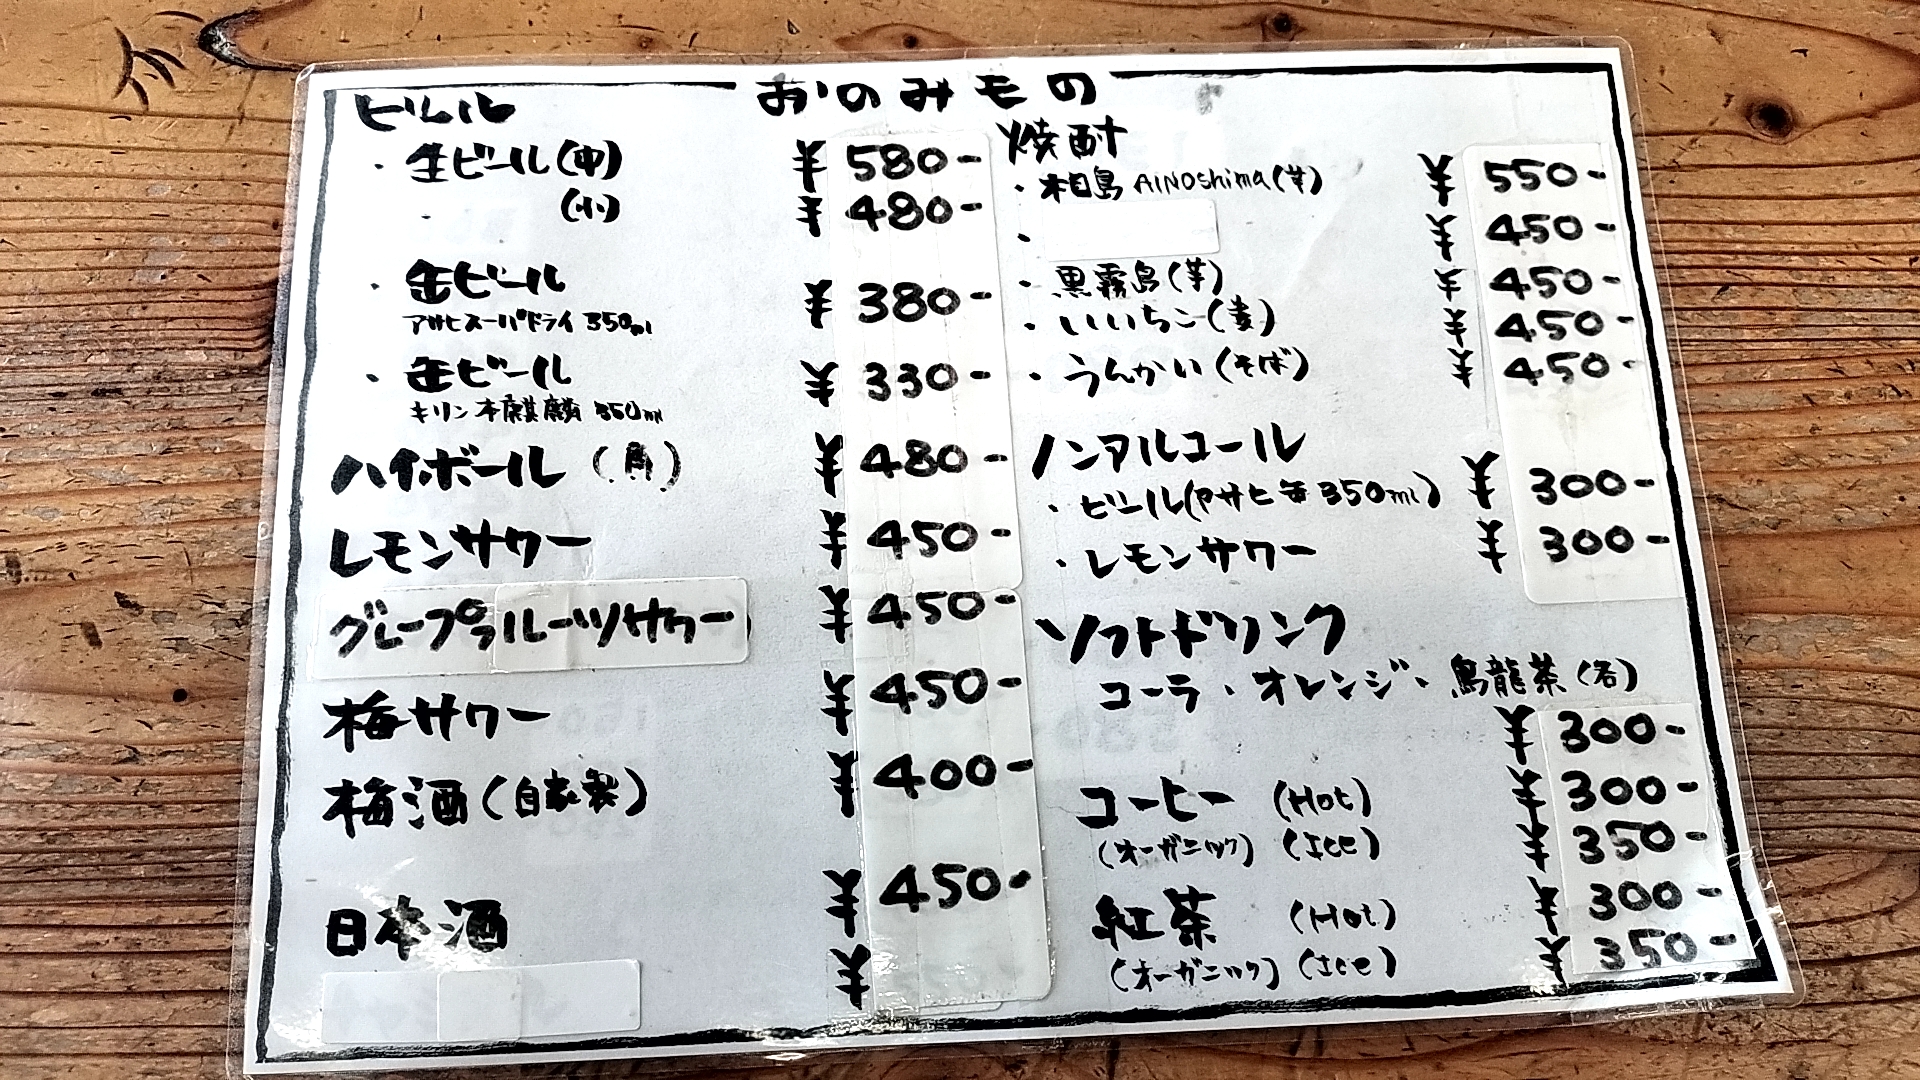 おのみもの
ビール
・生ビール(中) ¥580-
・(小) ¥480-
・缶ビール ¥380-
アサヒスーパードライ 350ml
・缶ビール ¥330-
キリン本麒麟 350ml
ハイボール (角) ¥480-
レモンサワー ¥450-
グレープフルーツサワー ¥450-
梅サワー ¥450-
梅酒(自家製) ¥400-
日本酒 ¥450-
¥
焼酎
・相島 AINOshima(芋) ¥550-
・ ¥450-
・黒霧島(芋) ¥450-
・いいちこ(麦) ¥450-
・うんかい(そば) ¥450-
ノンアルコール
・ビール(アサヒ缶350ml) ¥300-
・レモンサワー ¥300-
ソフトドリンク
コーラ・オレンジ・烏龍茶(各)
¥300-
コーヒー (Hot) ¥300-
(オーガニック) (Ice) ¥350-
紅茶 (Hot) ¥300-
(オーガニック) (Ice) ¥350-